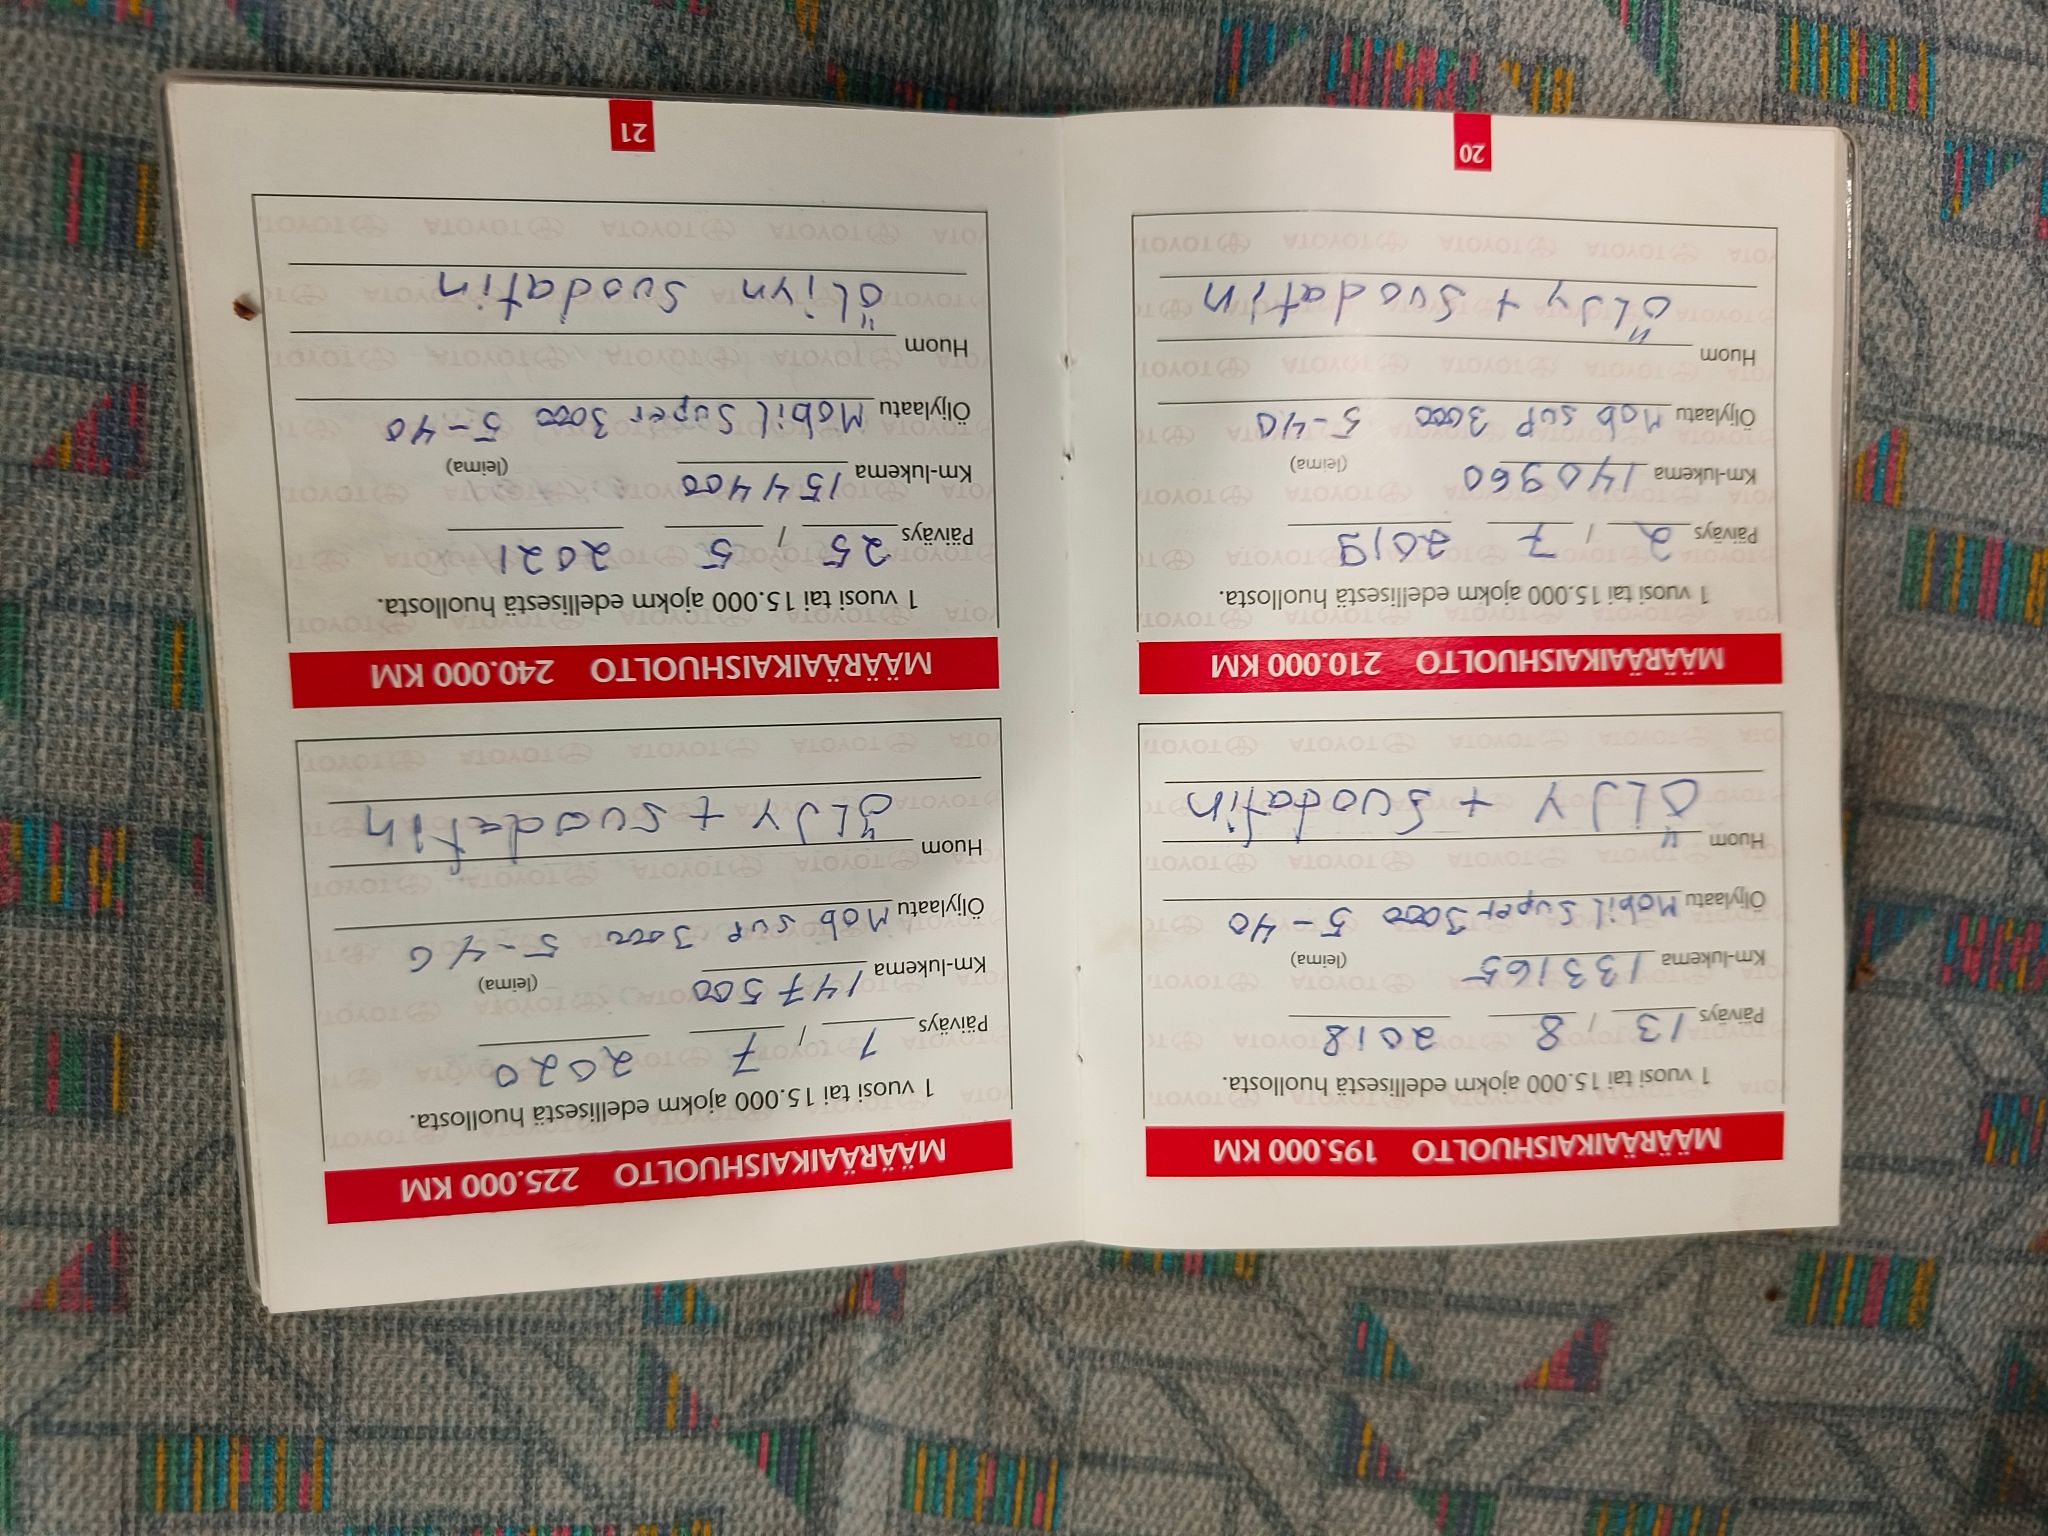 MÄÄRÄAIKAISHUOLTO 195.000 KM
1 vuosi tai 15.000 ajokm edellisestä huollosta.
Päiväys 13 / 8 2018
Km-lukema 133165 (leima)
Öljylaatu Mobil Super 3000 5-40
Huom
ÖLJY + Suodatin
MÄÄRÄAIKAISHUOLTO 210.000 KM
1 vuosi tai 15.000 ajokm edellisestä huollosta.
Päiväys 2 / 7 2019
Km-lukema 140960 (leima)
Öljylaatu Mob sup 3000 5-40
Huom
ÖLJy + Suodatin
20
MÄÄRÄAIKAISHUOLTO 225.000 KM
1 vuosi tai 15.000 ajokm edellisestä huollosta.
Päiväys 1 / 7 2020
Km-lukema 147500 (leima)
Öljylaatu Mob sup 3000 5-40
Huom
ÖLJY + Suodatin
MÄÄRÄAIKAISHUOLTO 240.000 KM
1 vuosi tai 15.000 ajokm edellisestä huollosta.
Päiväys 25 / 5 2021
Km-lukema 154400 (leima)
Öljylaatu Mobil Super 3000 5-40
Huom
ÖLjyn Suodatin
21